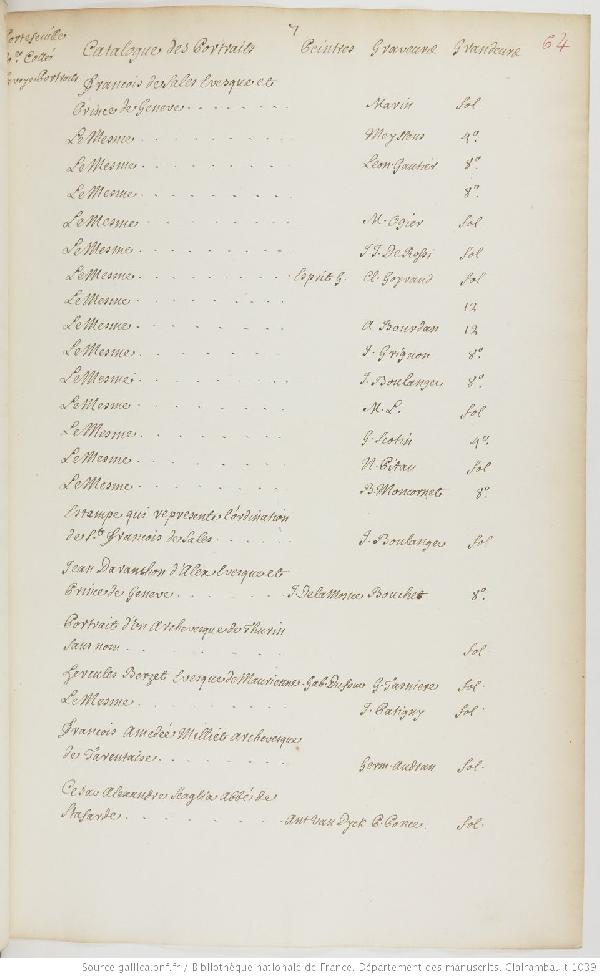 7
64
Portefeuille
Nº. Cotté
Savoye Portraits
Catalogue des Portraits Peintres Graveurs Grandeurs
François de Sales Evesque et
Prince de Geneve Marin fol
Le Mesme Meyssens 4º.
Le Mesme Leon Gautier 8º.
Le Mesme 8º.
Le Mesme M. Ogier fol
Le Mesme J J. De Rossi fol
Le Mesme Esprit G. Cl. Goyrand fol
Le Mesme 12
Le Mesme A Bourdan 12
Le Mesme J. Grignon 8º.
Le Mesme J. Boulanger 8º.
Le Mesme M. L. fol
Le Mesme G. Scotin 4º.
Le Mesme N. Pitau fol
Le Mesme B. Moncornet 8º.
Estampe qui represente l'ordination
de St. François de Sales J. Boulanger fol
Jean Daranthon d'Alex Evesque et
Prince de Geneve J. De la Monce Bouchet 8º.
Portrait d'un Archevesque de Thurin
sans nom fol
Hercules Berzet Evesque de Maurienne Gab. Dufour G. Tasniere fol
Le Mesme J. Patigny fol
François Amedée Milliet Archevesque
de Tarentaise Germ. Audran fol
Cesar Alexandre Scaglia Abbé de
Stafarde Ant Van Dyck P. Ponce fol
Source gallica.bnf.fr / Bibliothèque nationale de France. Département des manuscrits. Clairambault 1039